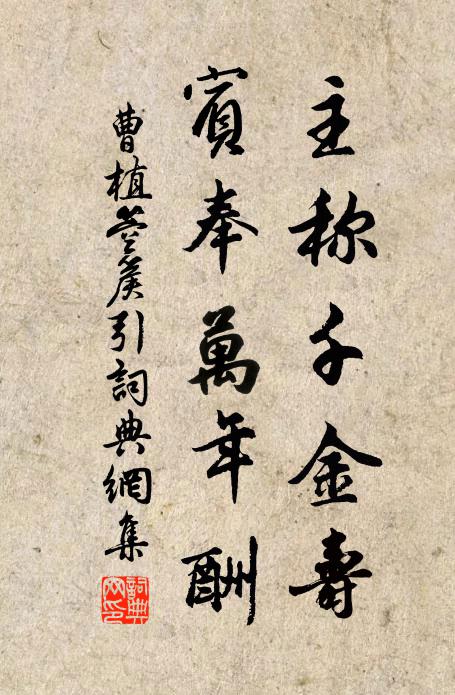 主称千金壽
賓奉萬年酬
曹植箜篌引詞典網集
詞典
网印